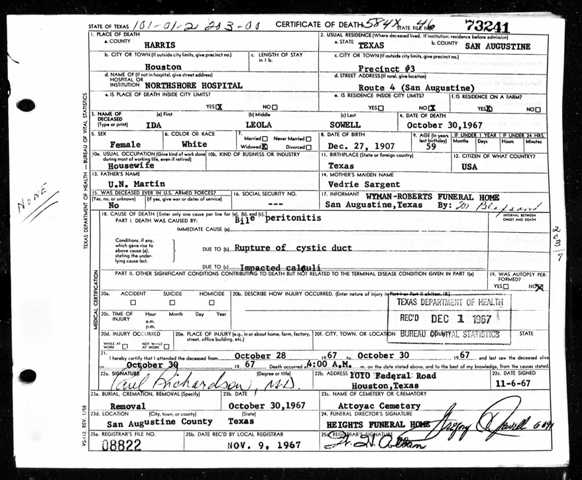 STATE OF TEXAS CERTIFICATE OF DEATH 73241
1. PLACE OF DEATH
a. COUNTY
HARRIS
2. USUAL RESIDENCE (Where deceased lived. If institution, residence before admission)
a. STATE TEXAS b. COUNTY SAN AUGUSTINE
b. CITY OR TOWN (If outside city limits, give precinct no.)
Houston
c. LENGTH OF STAY
c. CITY OR TOWN (If outside city limits, give precinct no.)
Precinct #3
d. NAME OF (If not in hospital, give street address)
HOSPITAL OR
INSTITUTION NORTHSHORE HOSPITAL
d. STREET ADDRESS (If rural, give location)
Route 4 (San Augustine)
e. IS PLACE OF DEATH INSIDE CITY LIMITS?
YES X NO
e. IS RESIDENCE INSIDE CITY LIMITS?
YES NO X
f. IS RESIDENCE ON A FARM?
YES X NO
3. NAME OF DECEASED
(Type or print)
(a) First (b) Middle (c) Last
IDA LEOLA SOWELL
4. DATE OF DEATH
October 30,1967
5. SEX
Female
6. COLOR OR RACE
White
7. Married Never Married
Widowed X Divorced
8. DATE OF BIRTH
Dec. 27, 1907
9. AGE (In years last birthday)
59
IF UNDER 1 YEAR
Months Days
IF UNDER 24 HRS.
Hours Minutes
10a. USUAL OCCUPATION (Give kind of work done during most of working life, even if retired)
Housewife
10b. KIND OF BUSINESS OR INDUSTRY
11. BIRTHPLACE (State or foreign country)
Texas
12. CITIZEN OF WHAT COUNTRY?
USA
13. FATHER'S NAME
U.N. Martin
14. MOTHER'S MAIDEN NAME
Vedrie Sargent
15. WAS DECEASED EVER IN U.S. ARMED FORCES?
(Yes, no, or unknown) (If yes, give war or dates of service)
No
16. SOCIAL SECURITY NO.
---
17. INFORMANT WYMAN-ROBERTS FUNERAL HOME
San Augustine,Texas By:
NONE
TEXAS DEPARTMENT OF HEALTH — BUREAU OF VITAL STATISTICS
18. CAUSE OF DEATH (Enter only one cause per line for (a), (b), and (c).)
INTERVAL BETWEEN ONSET AND DEATH
PART I. DEATH WAS CAUSED BY:
IMMEDIATE CAUSE (a) Bile peritonitis
Conditions, if any, which gave rise to above cause (a), stating the underlying cause last
DUE TO (b) Rupture of cystic duct
DUE TO (c) Impacted calculi
PART II. OTHER SIGNIFICANT CONDITIONS CONTRIBUTING TO DEATH BUT NOT RELATED TO THE TERMINAL DISEASE CONDITION GIVEN IN PART I(a)
19. WAS AUTOPSY PERFORMED?
YES NO X
MEDICAL CERTIFICATION
20a. ACCIDENT SUICIDE HOMICIDE
20b. DESCRIBE HOW INJURY OCCURRED.
20c. TIME OF INJURY Hour Month Day Year
a.m.
p.m.
TEXAS DEPARTMENT OF HEALTH
REC'D DEC 1 1967
BUREAU OF VITAL STATISTICS
20d. INJURY OCCURRED
WHILE AT WORK NOT WHILE AT WORK
20e. PLACE OF INJURY (e.g., in or about home, farm, factory, street, office building, etc.)
20f. CITY, TOWN, OR LOCATION COUNTY STATE
21. I hereby certify that I attended the deceased from October 28 1967 to October 30 1967 and last saw the deceased alive
on October 30 1967 Death occurred at 4:00 A.M. on the date stated above, and to the best of my knowledge, from the causes stated.
22a. SIGNATURE (Degree or title)
Paul Richardson, M.D.
22b. ADDRESS 1010 Federal Road
Houston,Texas
22c. DATE SIGNED
11-6-67
23a. BURIAL, CREMATION, REMOVAL (Specify)
Removal
23b. DATE
October 30,1967
23c. NAME OF CEMETERY OR CREMATORY
Attoyac Cemetery
23d. LOCATION (City, town, or county) (State)
San Augustine County Texas
24. FUNERAL DIRECTOR'S SIGNATURE
HEIGHTS FUNERAL HOME
25a. REGISTRAR'S FILE NO.
08822
25b. DATE REC'D BY LOCAL REGISTRAR
NOV. 9, 1967
25c. REGISTRAR'S SIGNATURE